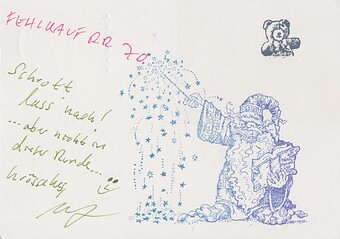 FEHLKAUF RR 70
Schrott
lass nach!
...aber nicht in
dieser Runde...